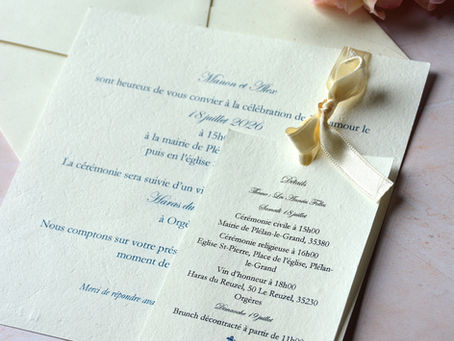 Manon et Alex
sont heureux de vous convier à la célébration de amour le
18 juillet 2026
à 15h
à la mairie de Plél
puis en l'église
La cérémonie sera suivie d'un vi
Haras du
à Orgè
Nous comptons sur votre prés
moment de
Merci de répondre ava
Détails
Thème : Les Années Folles
Samedi 18 juillet
Cérémonie civile à 15h00
Mairie de Plélan-le-Grand, 35380
Cérémonie religieuse à 16h00
Eglise St-Pierre, Place de l'église, Plélan-
le-Grand
Vin d'honneur à 18h00
Haras du Reuzel, 50 Le Reuzel, 35230
Orgères
Dimanche 19 juillet
Brunch décontracté à partir de 11h0